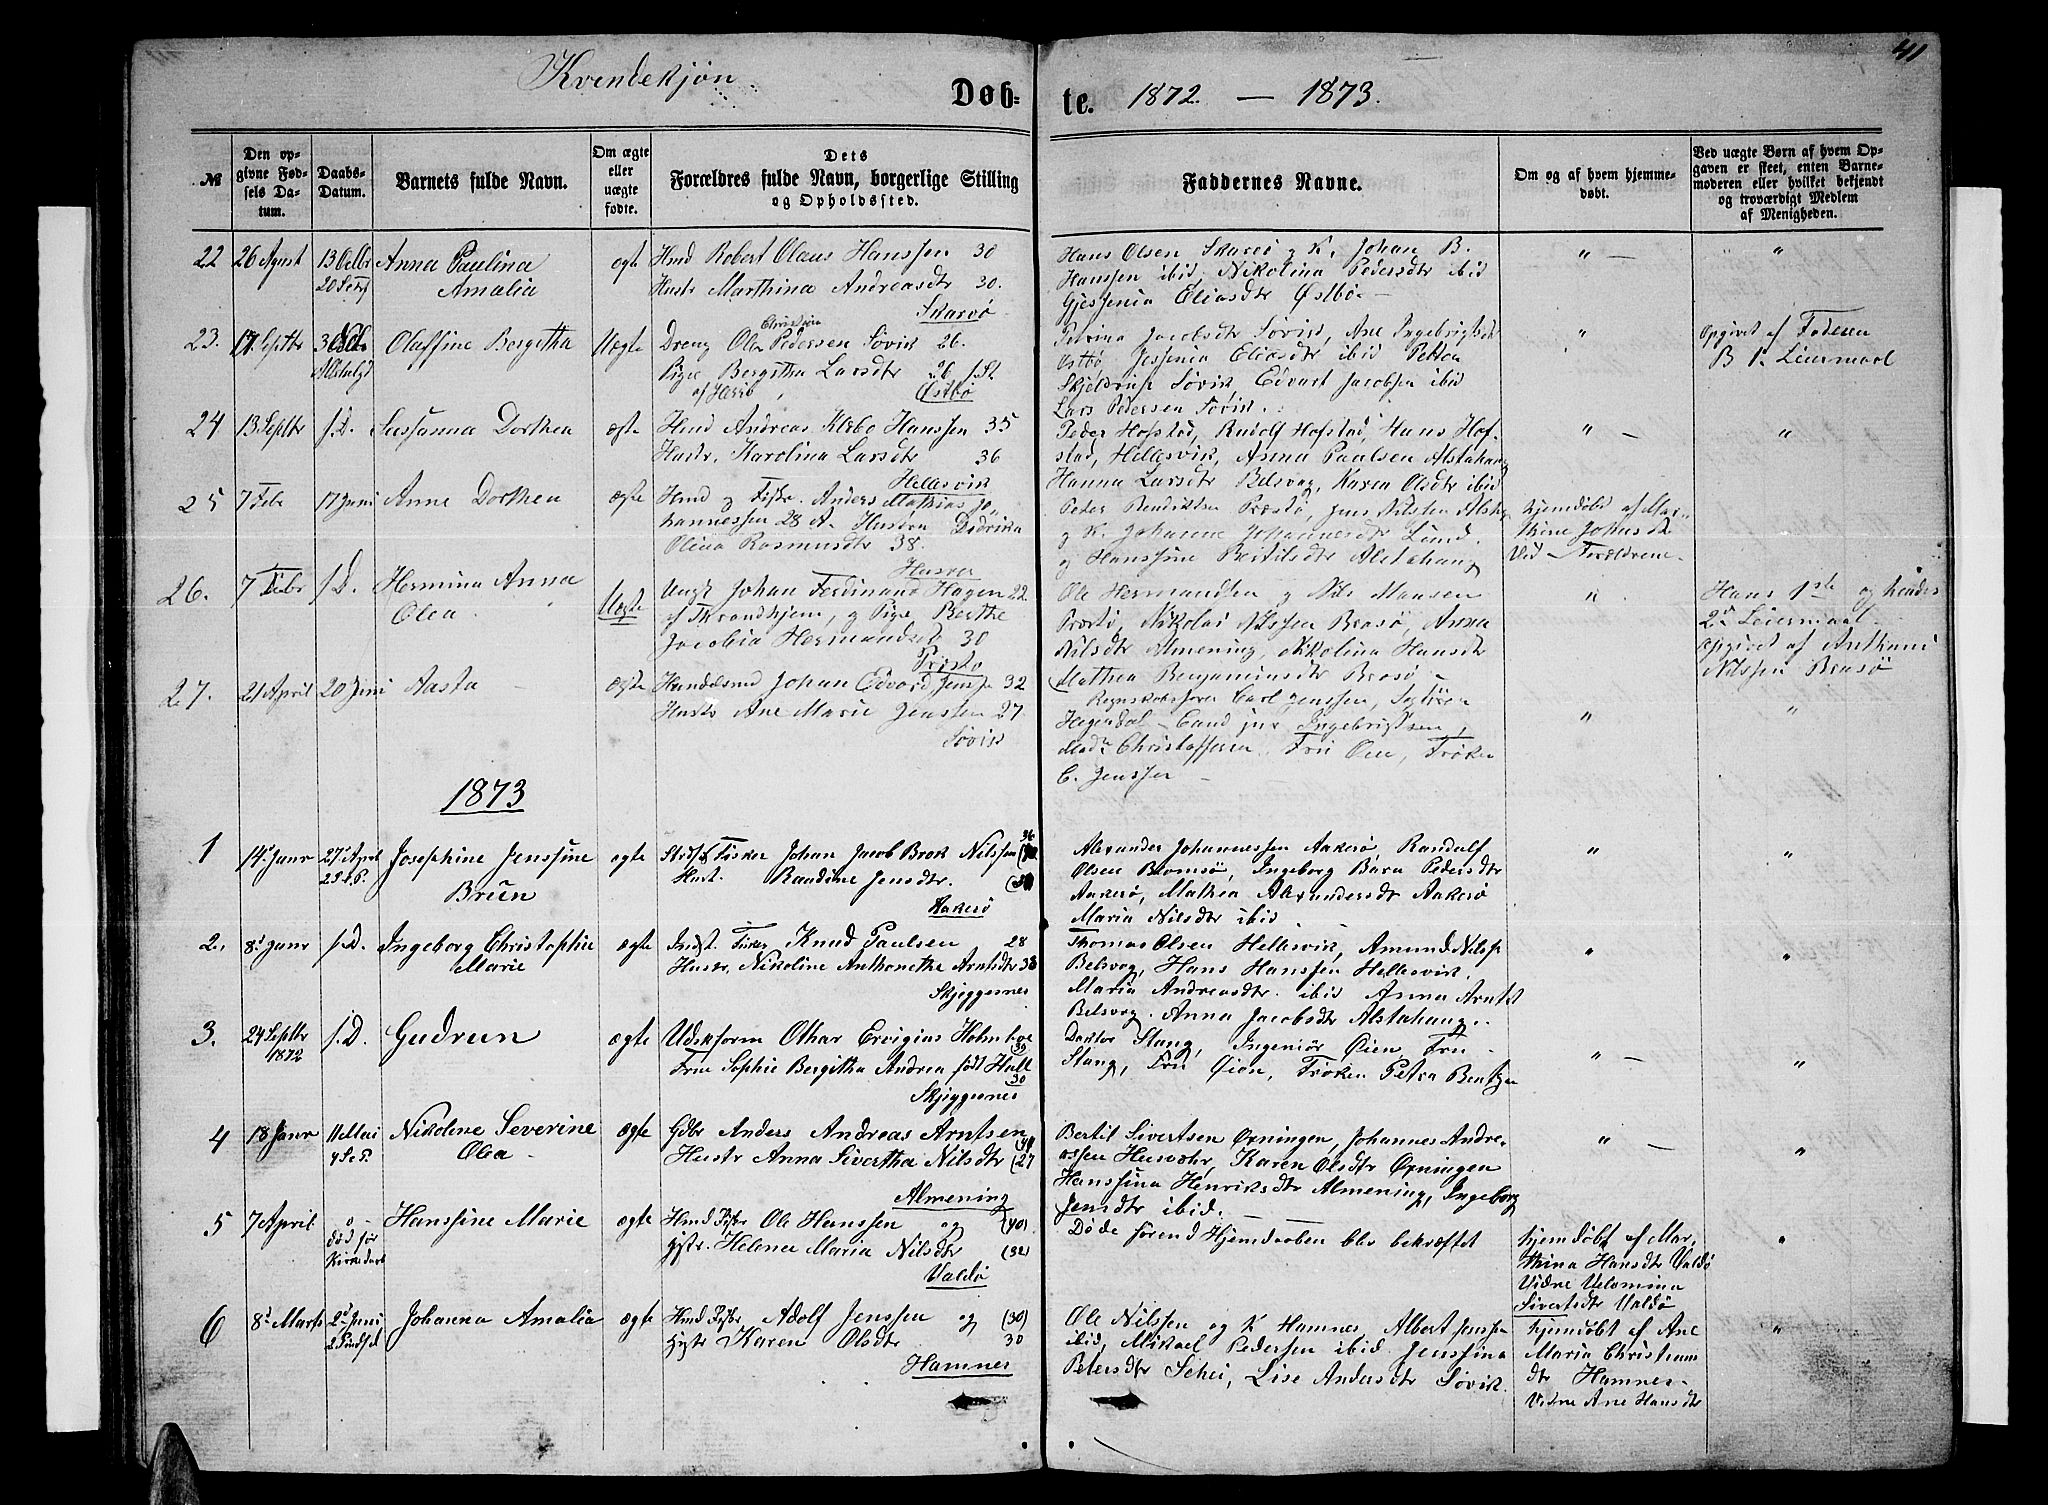 41
Kvindekjøn
Døb-
te. 1872. — 1873.
№
Den op-
givne Fød-
sels Da-
tum.
Daabs-
Datum.
Barnets fulde Navn.
Om ægte
eller
uægte
fødte.
Dets
Forældres fulde Navn, borgerlige Stilling
og Opholdssted.
Faddernes Navne.
Om og af hvem hjemme-
døbt.
Ved uægte Børn af hvem Op-
gaven er skeet, enten Barne-
moderen eller hvilket bekjendt
og troværdigt Medlem
af Menigheden.
22
26 August
13 Octbr
Anna Paulina
Amalia
ægte
Hmd Robert Olaus Hanssen 30
Hustr Marthina Andreasdtr 30.
Skarvø
Hans Olsen Skarvø og K. Johan B.
Hanssen ibid Nikolina Pedersdtr ibid
Gjessenia Eliasdtr Østbø
" —
"
23.
17 Septbr
Oluffine Bergitha
Uægte
Christian
Dreng Ole Pedersen Søvik 26.
Pige Bergitha Larsdtr 26
af Herrø
Østbø
Petrina Jacobsdtr Søvik, Ane Ingebrigtsdtr
Østbø Jessenia Eliasdtr ibid Petter
Skjeldrup Søvik, Edvart Jacobsen ibid
Lars Pedersen Søvik.
"
Opgivet af Faderen
B 1. Leiermaal
24
13 Septbr
s.D.
Sussanna Dorthea
ægte
Hmd Andreas Klæbo Hanssen 35
Hustr. Karolina Larsdtr 36
Hellesvik
Peder Hofstad, Rudolf Hofstad, Hans Hof-
stad, Hellesvik, Anna Paulsen Alstahaug
Hanna Larsdtr Belsvag, Karen Olsdtr ibid
" —
"
25
7 Febr
17 Juni
Anne Dorthea
ægte
Hmd og Fiskr. Anders Mathias Jo-
hannessen 28 A. Hustru Didrika
Olina Rasmusdtr 38.
Husvær
Peder Hendriksen Præstø, Jens Nilsen Alsth
og K. Johanne Johannesdtr Lund.
og Hanssine Bertilsdtr Alstahaug
hjemdøbt af Mar-
thine Johnsdtr
Vid — Forældrene
26.
7 Febr
s.D.
Hermina Anna
Olea
Uægte
Ungk Johan Ferdinand Hagen 22
af Throndhjem, og Pige Berthe
Jacobia Hermandsdtr 30
Præstø
Ole Hermandsen og Nils Monsen
Præstø, Nikolai Nilssen Brasø, Anna
Nilsdtr Almening, Nikolina Hansdtr
Mathea Benjaminsdtr Brasø
"
Hans 1ste og hendes
2d Leiermaal
opgivet af Anthoni
Nilssen Brasø
27.
21 April
20 Juni
Aasta
ægte
Handelsmd Johan Edvard Jenssen 32
Hustr Ane Marie Jenssen 27
Søvik
Regnskabsfører Carl Jenssen,
Hegerdal — Cand jur Ingebrigtsen,
Mad. Christoffersen Fru Øien, Frøken
C. Jenssen
"
"
1873
1
14 Janr
27 April
2 S. e. P.
Josephine Jenssine
Brun
ægte
Fisker Johan Jacob Brok Nilssen 36
Hust. Randine Jensdtr.
Aakerø
Alexander Johannessen Aakerø Randulf
Olsen Blomsø, Ingeborg Bara Pedersdtr
Aakerø, Mathea Alexandersdtr Aakerø
Maria Nilsdtr ibid
"
"
2.
8 Janr
s.D.
Ingeborg Christophie
Marie
ægte
Indst. Fisker Knud Paulsen 28
Hustr. Nikoline Anthonethe Arntsdtr 38
Skjeggesnes
Thomas Olsen Hellesvik, Amund Nilss
Belsvag, Hans Hanssen Hellesvik.
Maria Andreasdtr ibid Anna Arntsdt
Belsvag. Anna Jacobsdtr Alstahaug.
"
"
3.
24 Septbr
1872
s.D.
Gudrun
ægte
Udskiform Othar Ervigius Holmboe
39
Frue Sophie Bergitha Andrea født Hall
30
Skjeggesnes
Doktor Stang, Ingeniør Øien Fru
Stang, Fru Øien, Frøken Petra Bentzen
" —
"
4
18 Janr
11 Mai
4 S. e. P.
Nikoline Severine
Olea
ægte
Gdbr Anders Andreas Arntsen
(40
Hustr Anna Sivertha Nilsdtr (27
Almening
Bertil Sivertsen Øxningen, Johannes Andre-
assen Husvær, Karen Olsdtr Øxningen
Hanssina Henriksdtr Almening, Ingeborg
Jensdtr ibid.
" —
"
5
7 April
død før
Kirkedaab
Hanssine Marie
ægte
Hmd Fiskr Ole Hanssen og (40)
Hstr. Helena Maria Nilsdtr (32)
Valdø
Døde førend Hjemdaaben blev bekræftet
hjemdøbt af Mar-
thina Hansdtr Valdø
Vidne Velomina
Sivertsdtr Valdø
"
6
8 Marts
2 Juni
2 Pindsed
Johanna Amalia
ægte
Hmd Fiskr Adolf Jenssen og (30)
Hstr Karen Olsdtr 30
Hamnes
Ole Nilssen og K Hamnes, Albert Jenssen
ibid, Mikael Pedersen ibid Jenssina
Petersdtr Schei, Lise Andersdtr Søvik.
hjemdøbt af Ane
Maria Christians
dtr Hamnes.
Vidne Ane Hansdtr
"